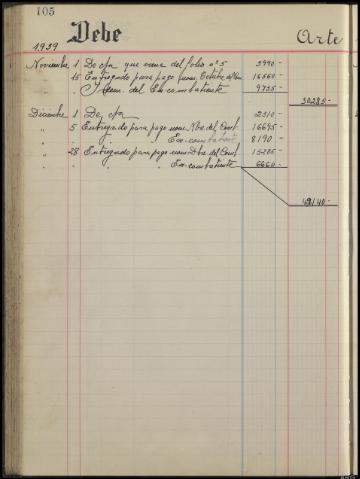 105
Debe
Arte
1939
Noviembre 1 De cta que viene del folio nº 5 3990-
15 Entregado para pago nom. Octubre del 16560-
Idem. del Ex-combatiente 9735-
30285-
Diciembre 1 De cta 2310-
" 5 Entregado para pago nom. Nbre. del Comb. 16695-
" " " " Ex-combatient. 8190-
" 28 Entregado para pago nom. Dbre del Comb. 15285-
" " " " Ex-combatiente 6660-
49140-